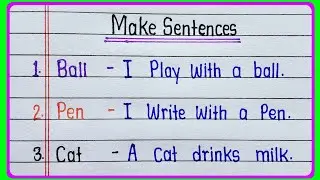 Make Sentences
1. Ball - I Play with a ball.
2. Pen - I Write with a Pen.
3. Cat - A Cat drinks milk.